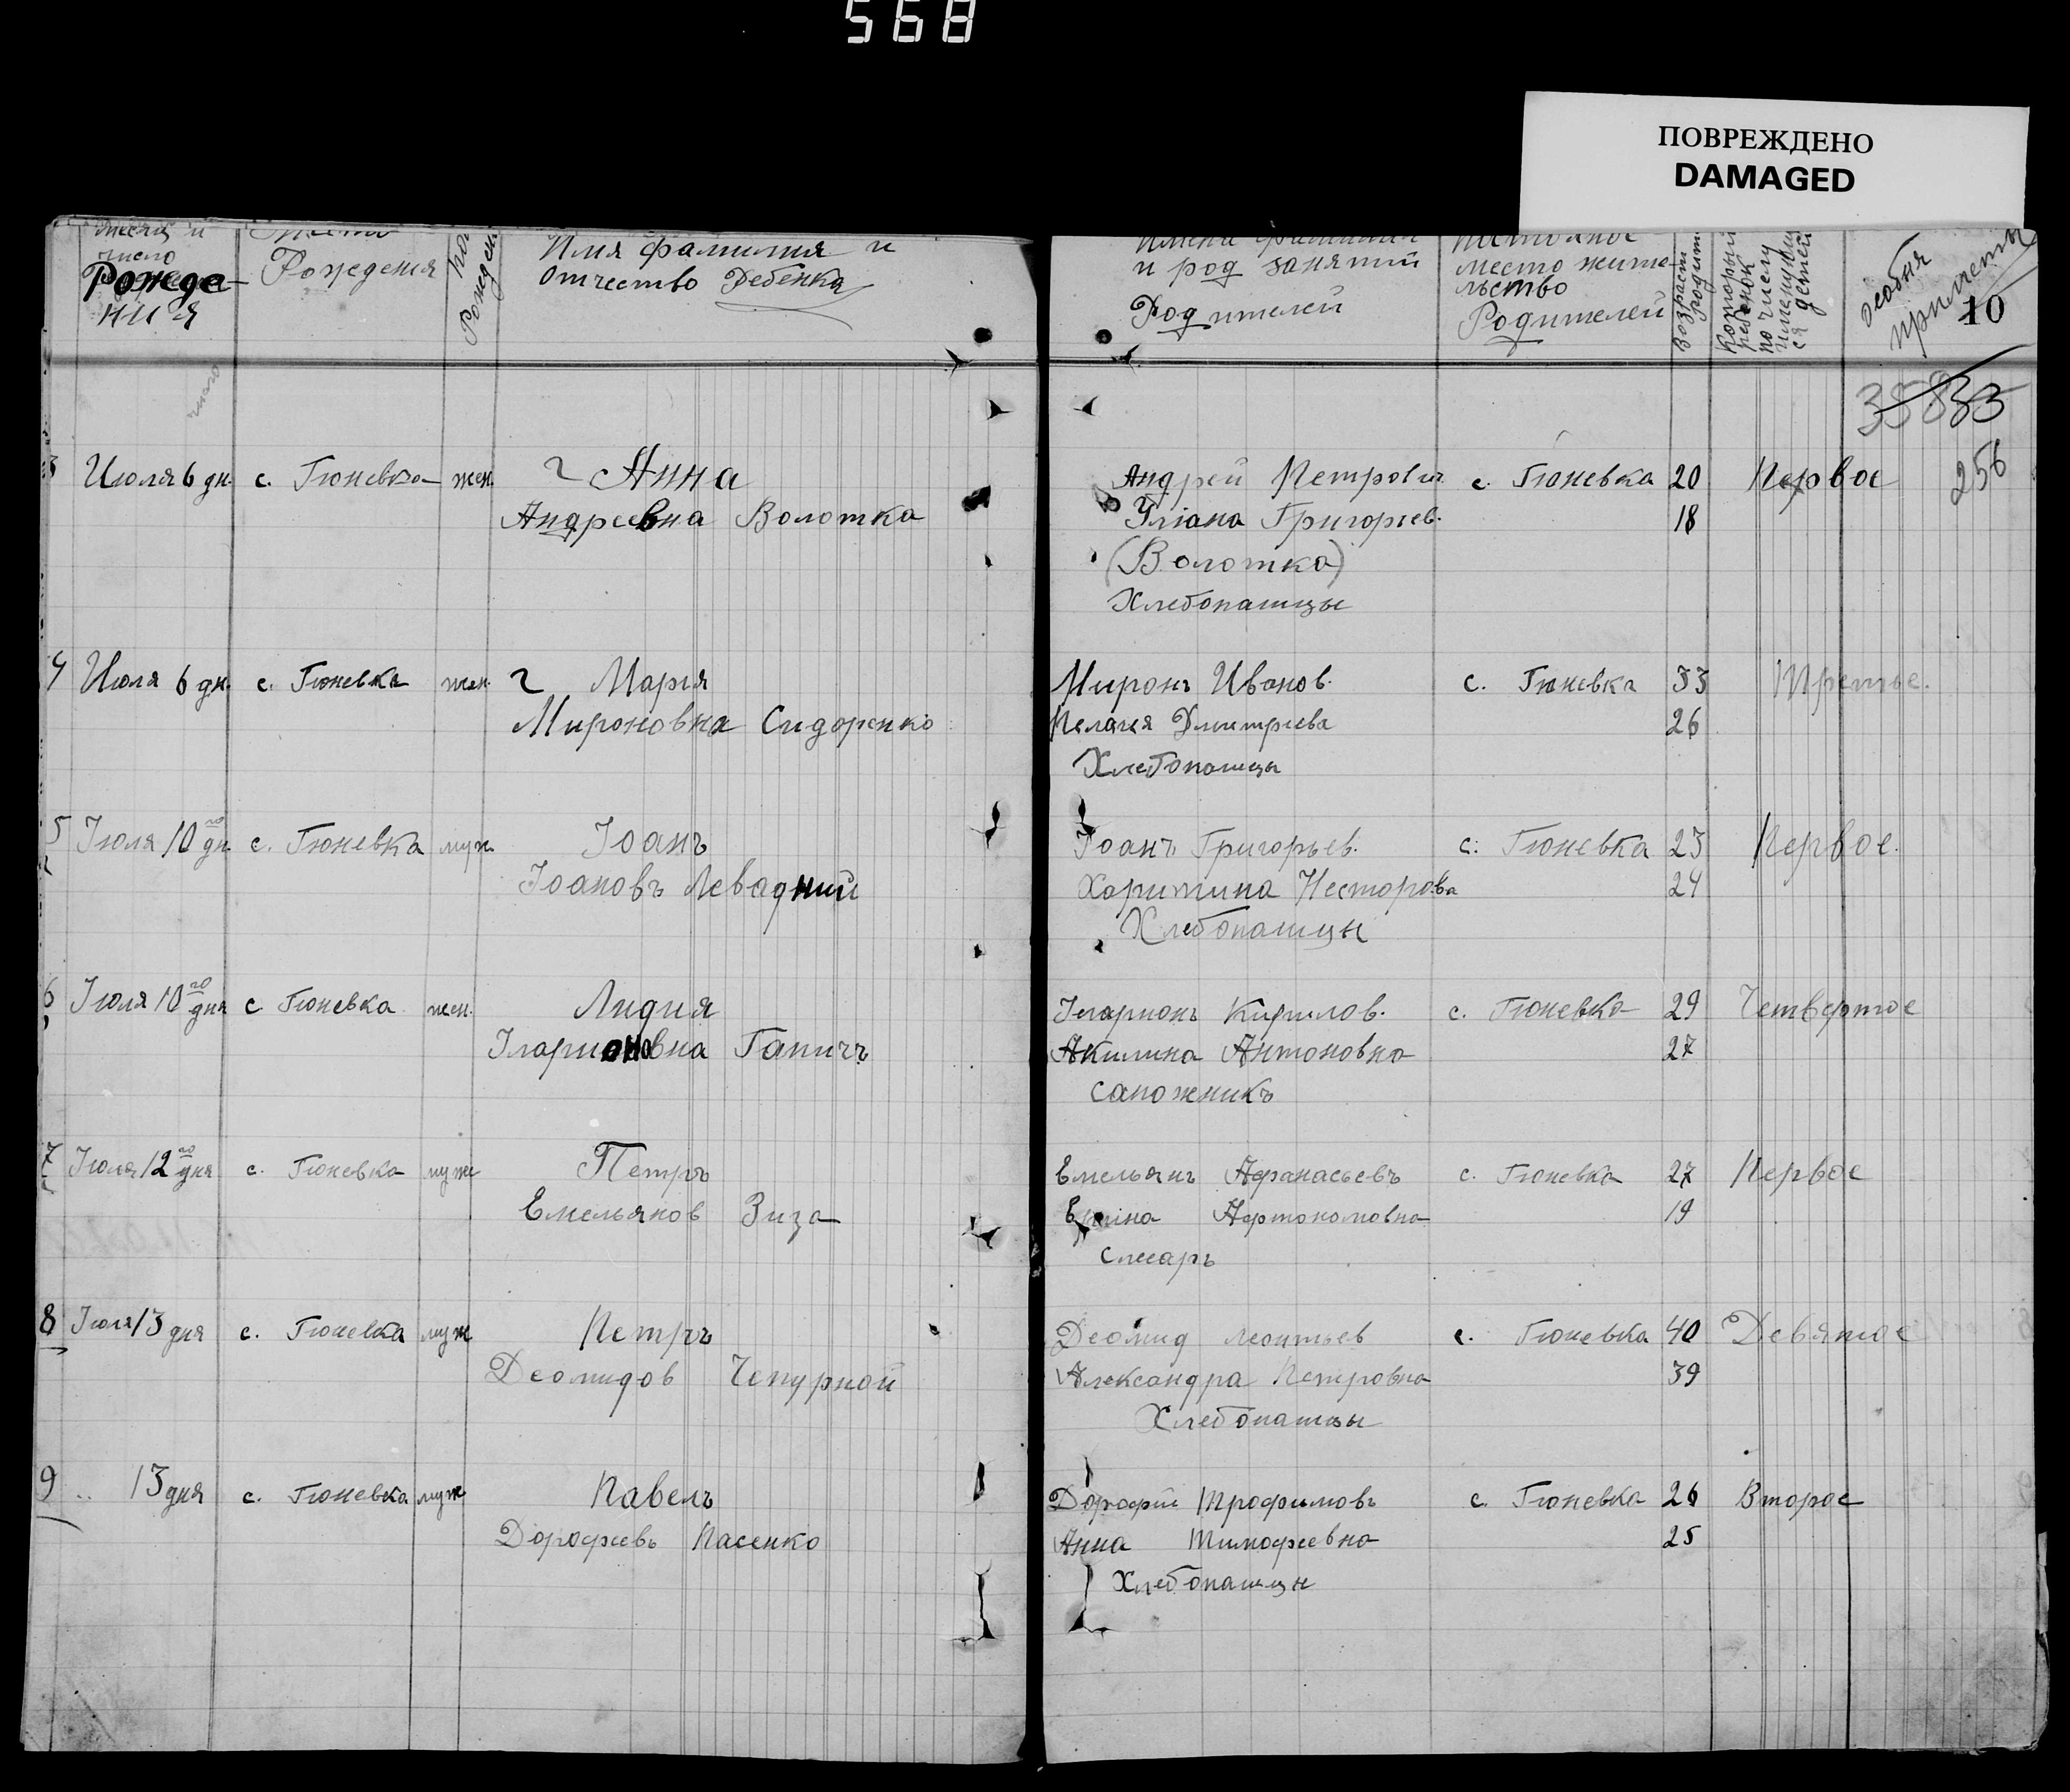 568
ПОВРЕЖДЕНО
DAMAGED
месяц и число Рождения
Место Рождения
пол Рожден
Имя фамилия и отчество Ребёнка
Имена фамилия и род занятий Родителей
постоянное место жительство Родителей
Возраст родит
который ребенок по числу имеющихся детей
особня приметы
10
33
256
3 Июля 6 дн. с. Гюневка жен. Анна Андрей Петрович с. Гюневка 20 Первое
Андреевна Волотка Уліана Григорьев. 18
(Волотка)
Хлебопашцы
4 Июля 6 дн. с. Гюневка жен. Мария Миронъ Иванов. с. Гюневка 33 Третье.
Мироновна Сидоренко Пелагея Дмитриева 26
Хлебопашцы
5 Іюля 10го дн с. Гюневка муж. Іоанъ Іоанъ Григорьев. с. Гюневка 23 Первое.
Іоановъ Левадний Харитина Несторова 24
Хлебопашцы
6 Іюля 10го дня с Гюневка жен. Лидия Іларионъ Кирилов. с. Гюневка 29 Четвертое
Іларионовна Ганичъ Акилина Антоновна 27
сапожникъ
7 Іюля 12го дня с. Гюневка муж Петръ Емельянъ Афанасьевъ с. Гюневка 27 Первое
Емельянов Зиза Артономовна 19
слесарь
8 Іюля 13 дня с. Гюневка муж Петръ Деомид Леонтьев с. Гюневка 40 Девятое
Деомидов Чепурной Александра Петровна 39
Хлебопашцы
9 „ 13 дня с. Гюневка муж Павелъ Дорофей Трофимовъ с. Гюневка 26 Второе
Дорофеевъ Пасенко Анна Тимофеевна 25
Хлебопашцы